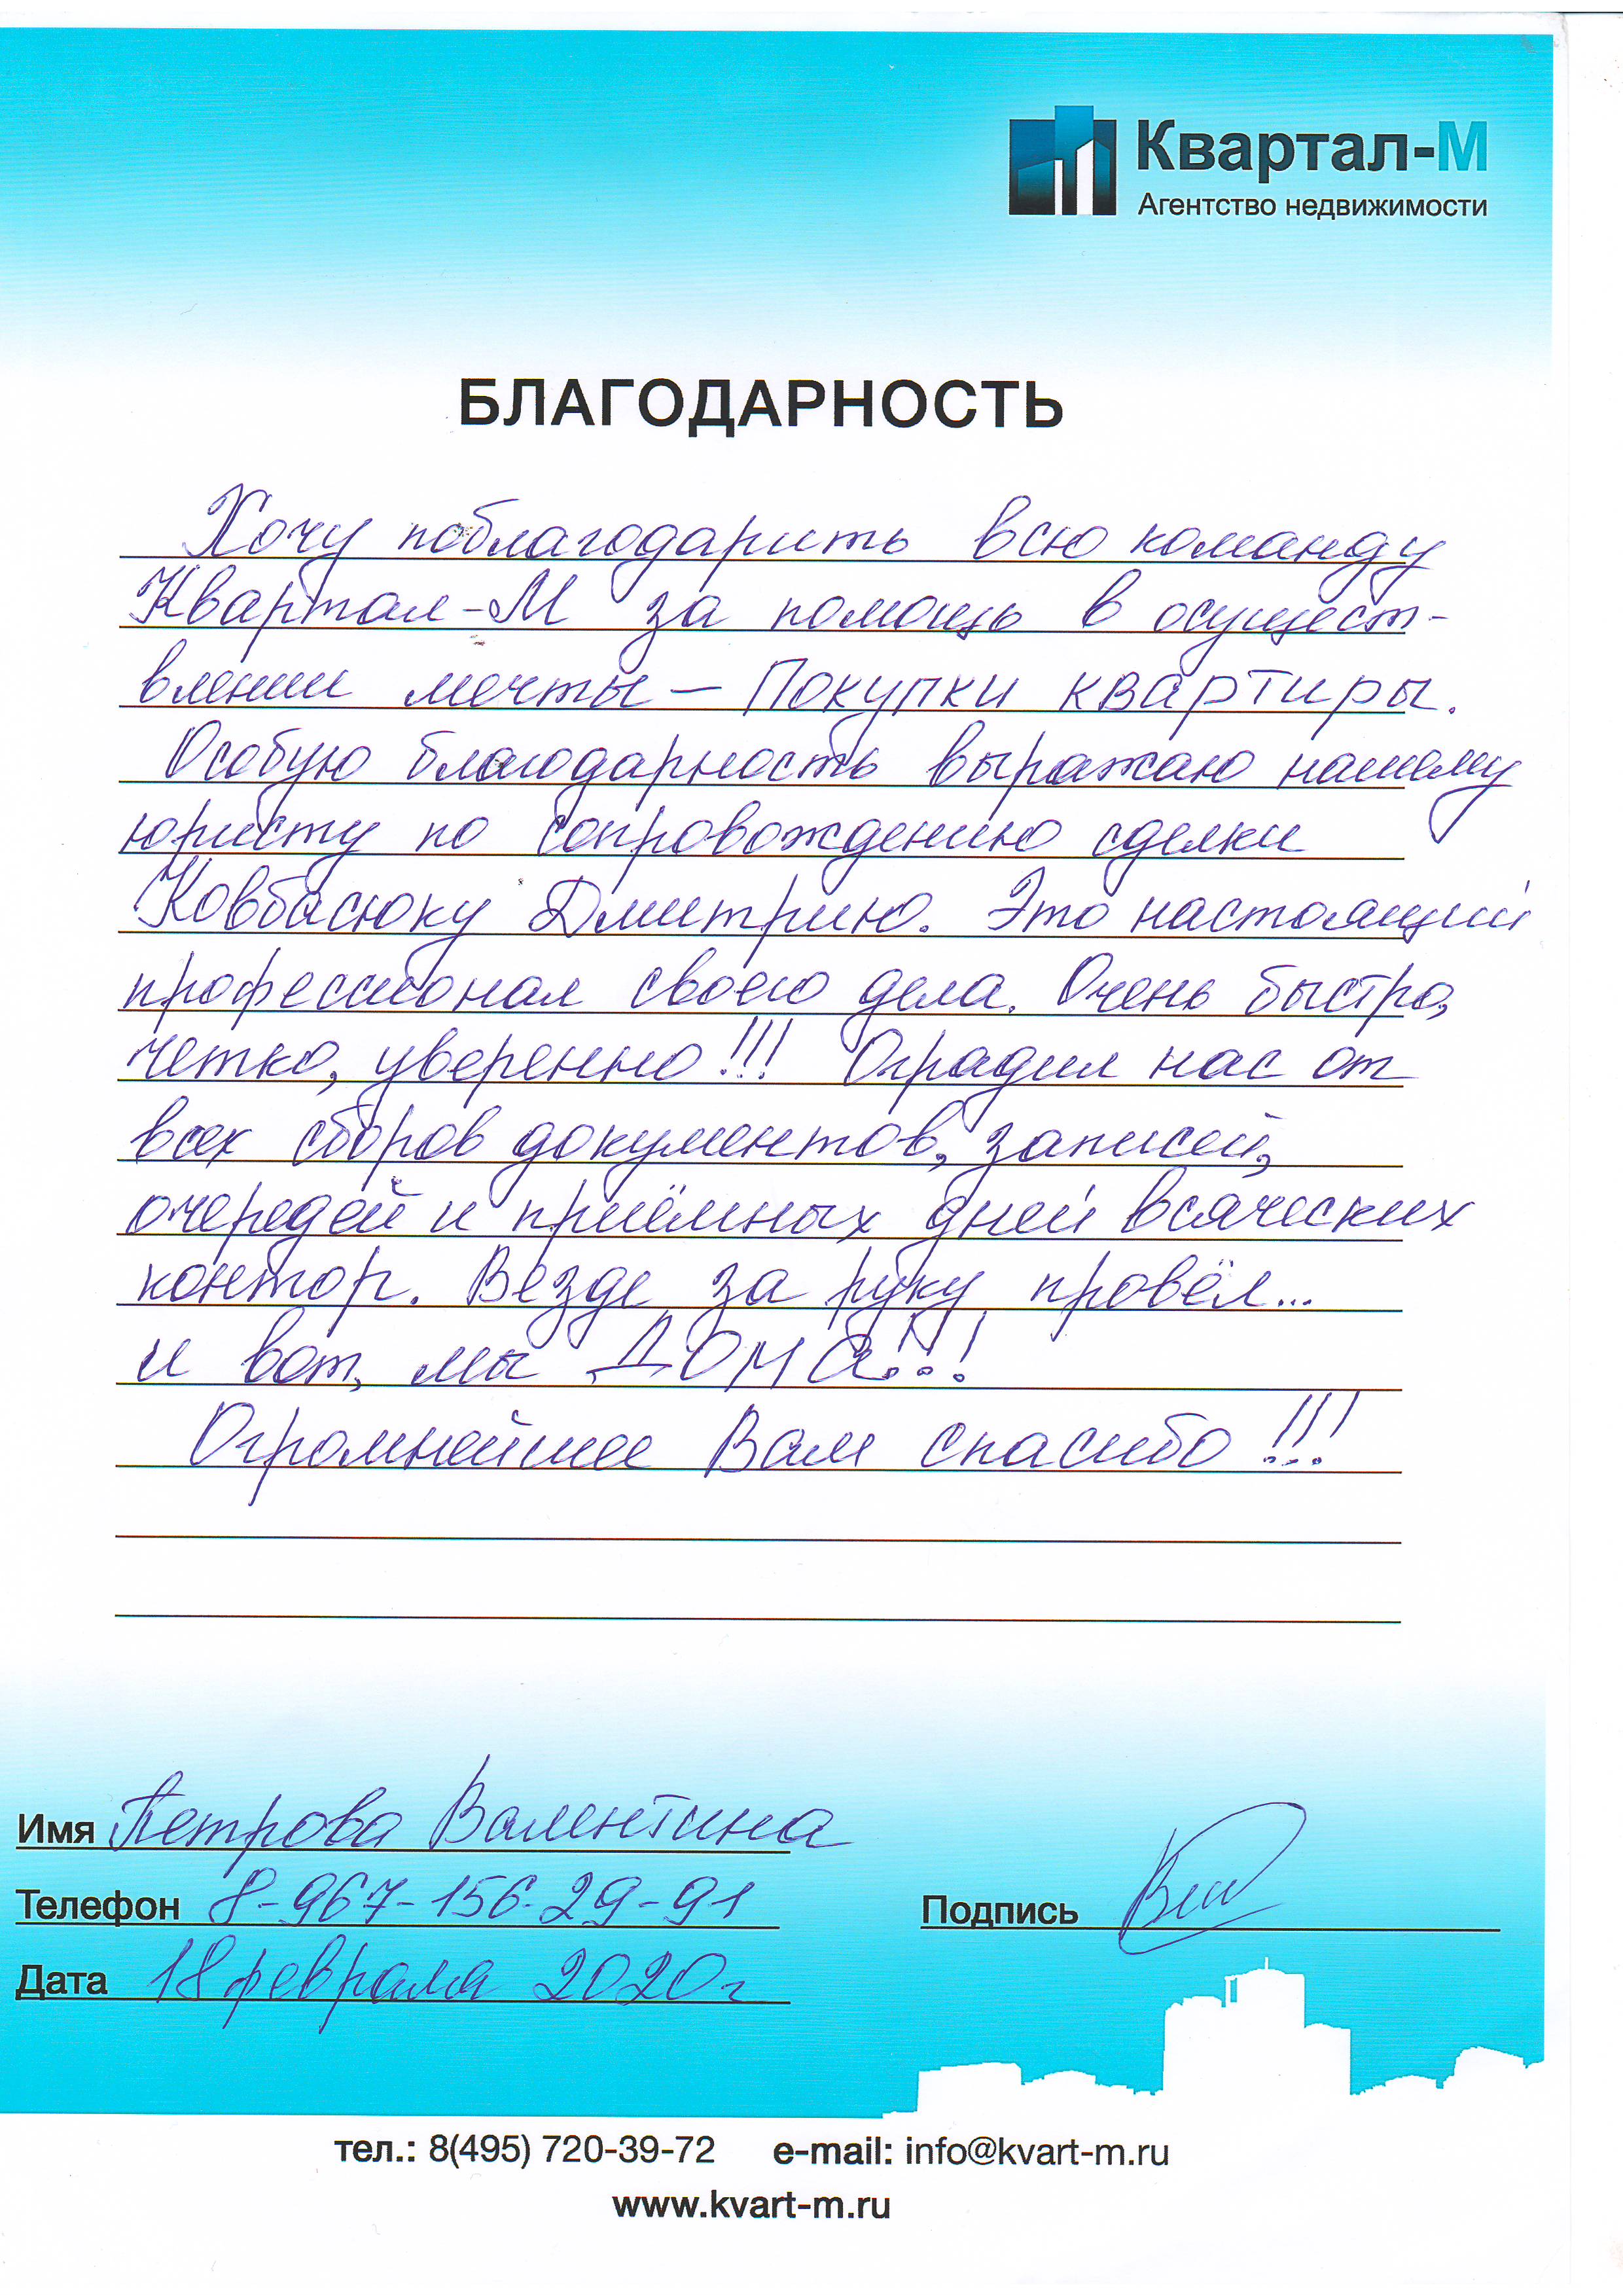 Квартал-М
Агентство недвижимости
БЛАГОДАРНОСТЬ
Хочу поблагодарить всю команду
Квартал-М за помощь в осущест-
влении мечты — Покупки квартиры.
Особую благодарность выражаю нашему
юристу по сопровождению сделки
Ковбасюку Дмитрию. Это настоящий
профессионал своего дела. Очень быстро,
четко, уверенно!!! Оградил нас от
всех сборов документов, записей,
очередей и приёмных дней всяческих
контор. Везде за руку провёл...
и вот, мы ДОМА!!!
Огромнейшее Вам спасибо!!!
Имя Петрова Валентина
Телефон 8-967-156-29-91
Подпись
Дата 18 февраля 2020 г
тел.: 8(495) 720-39-72 e-mail: info@kvart-m.ru
www.kvart-m.ru